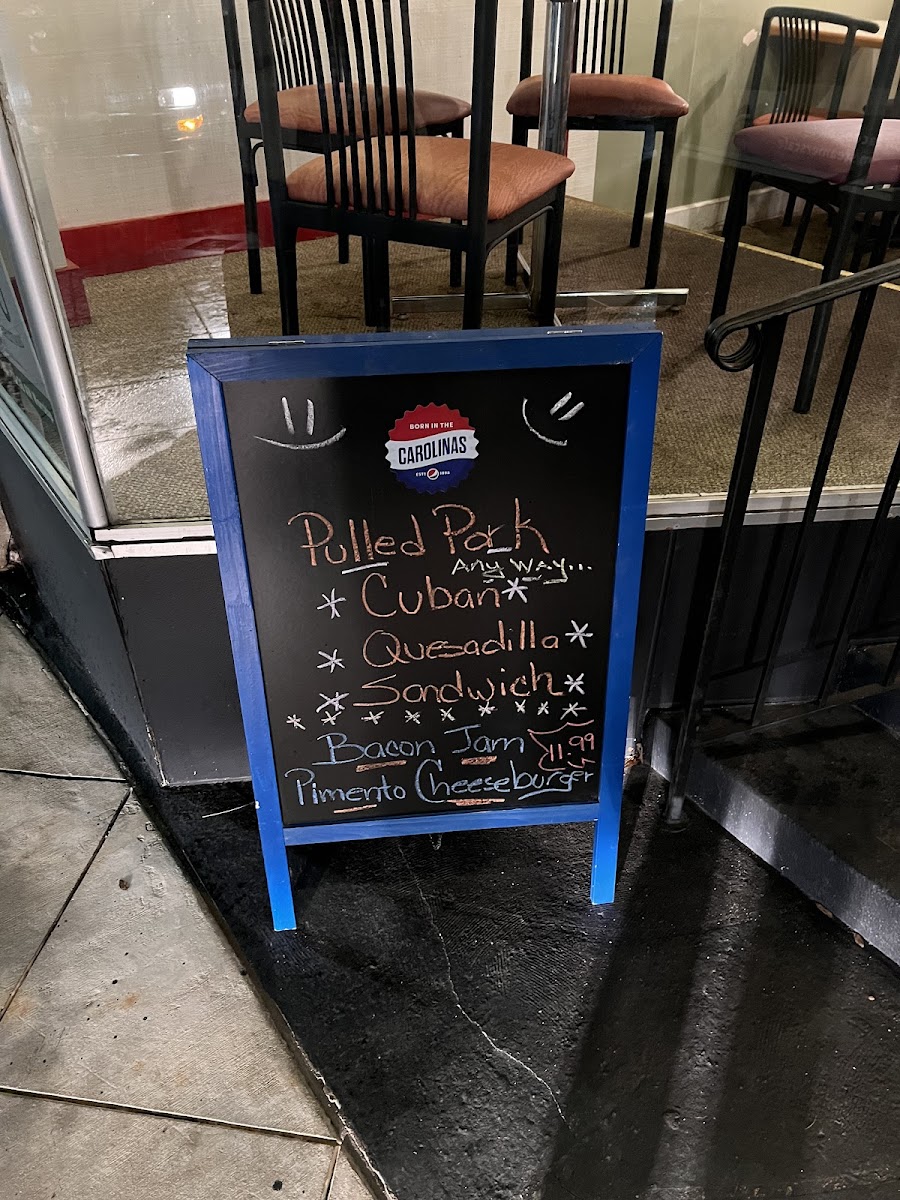 BORN IN THE
CAROLINAS
ESTD 1898
Pulled Pork
Any Way...
* Cuban *
* Quesadilla *
* Sandwich *
* * * * * * * * *
Bacon Jam 11.99
Pimento Cheeseburger